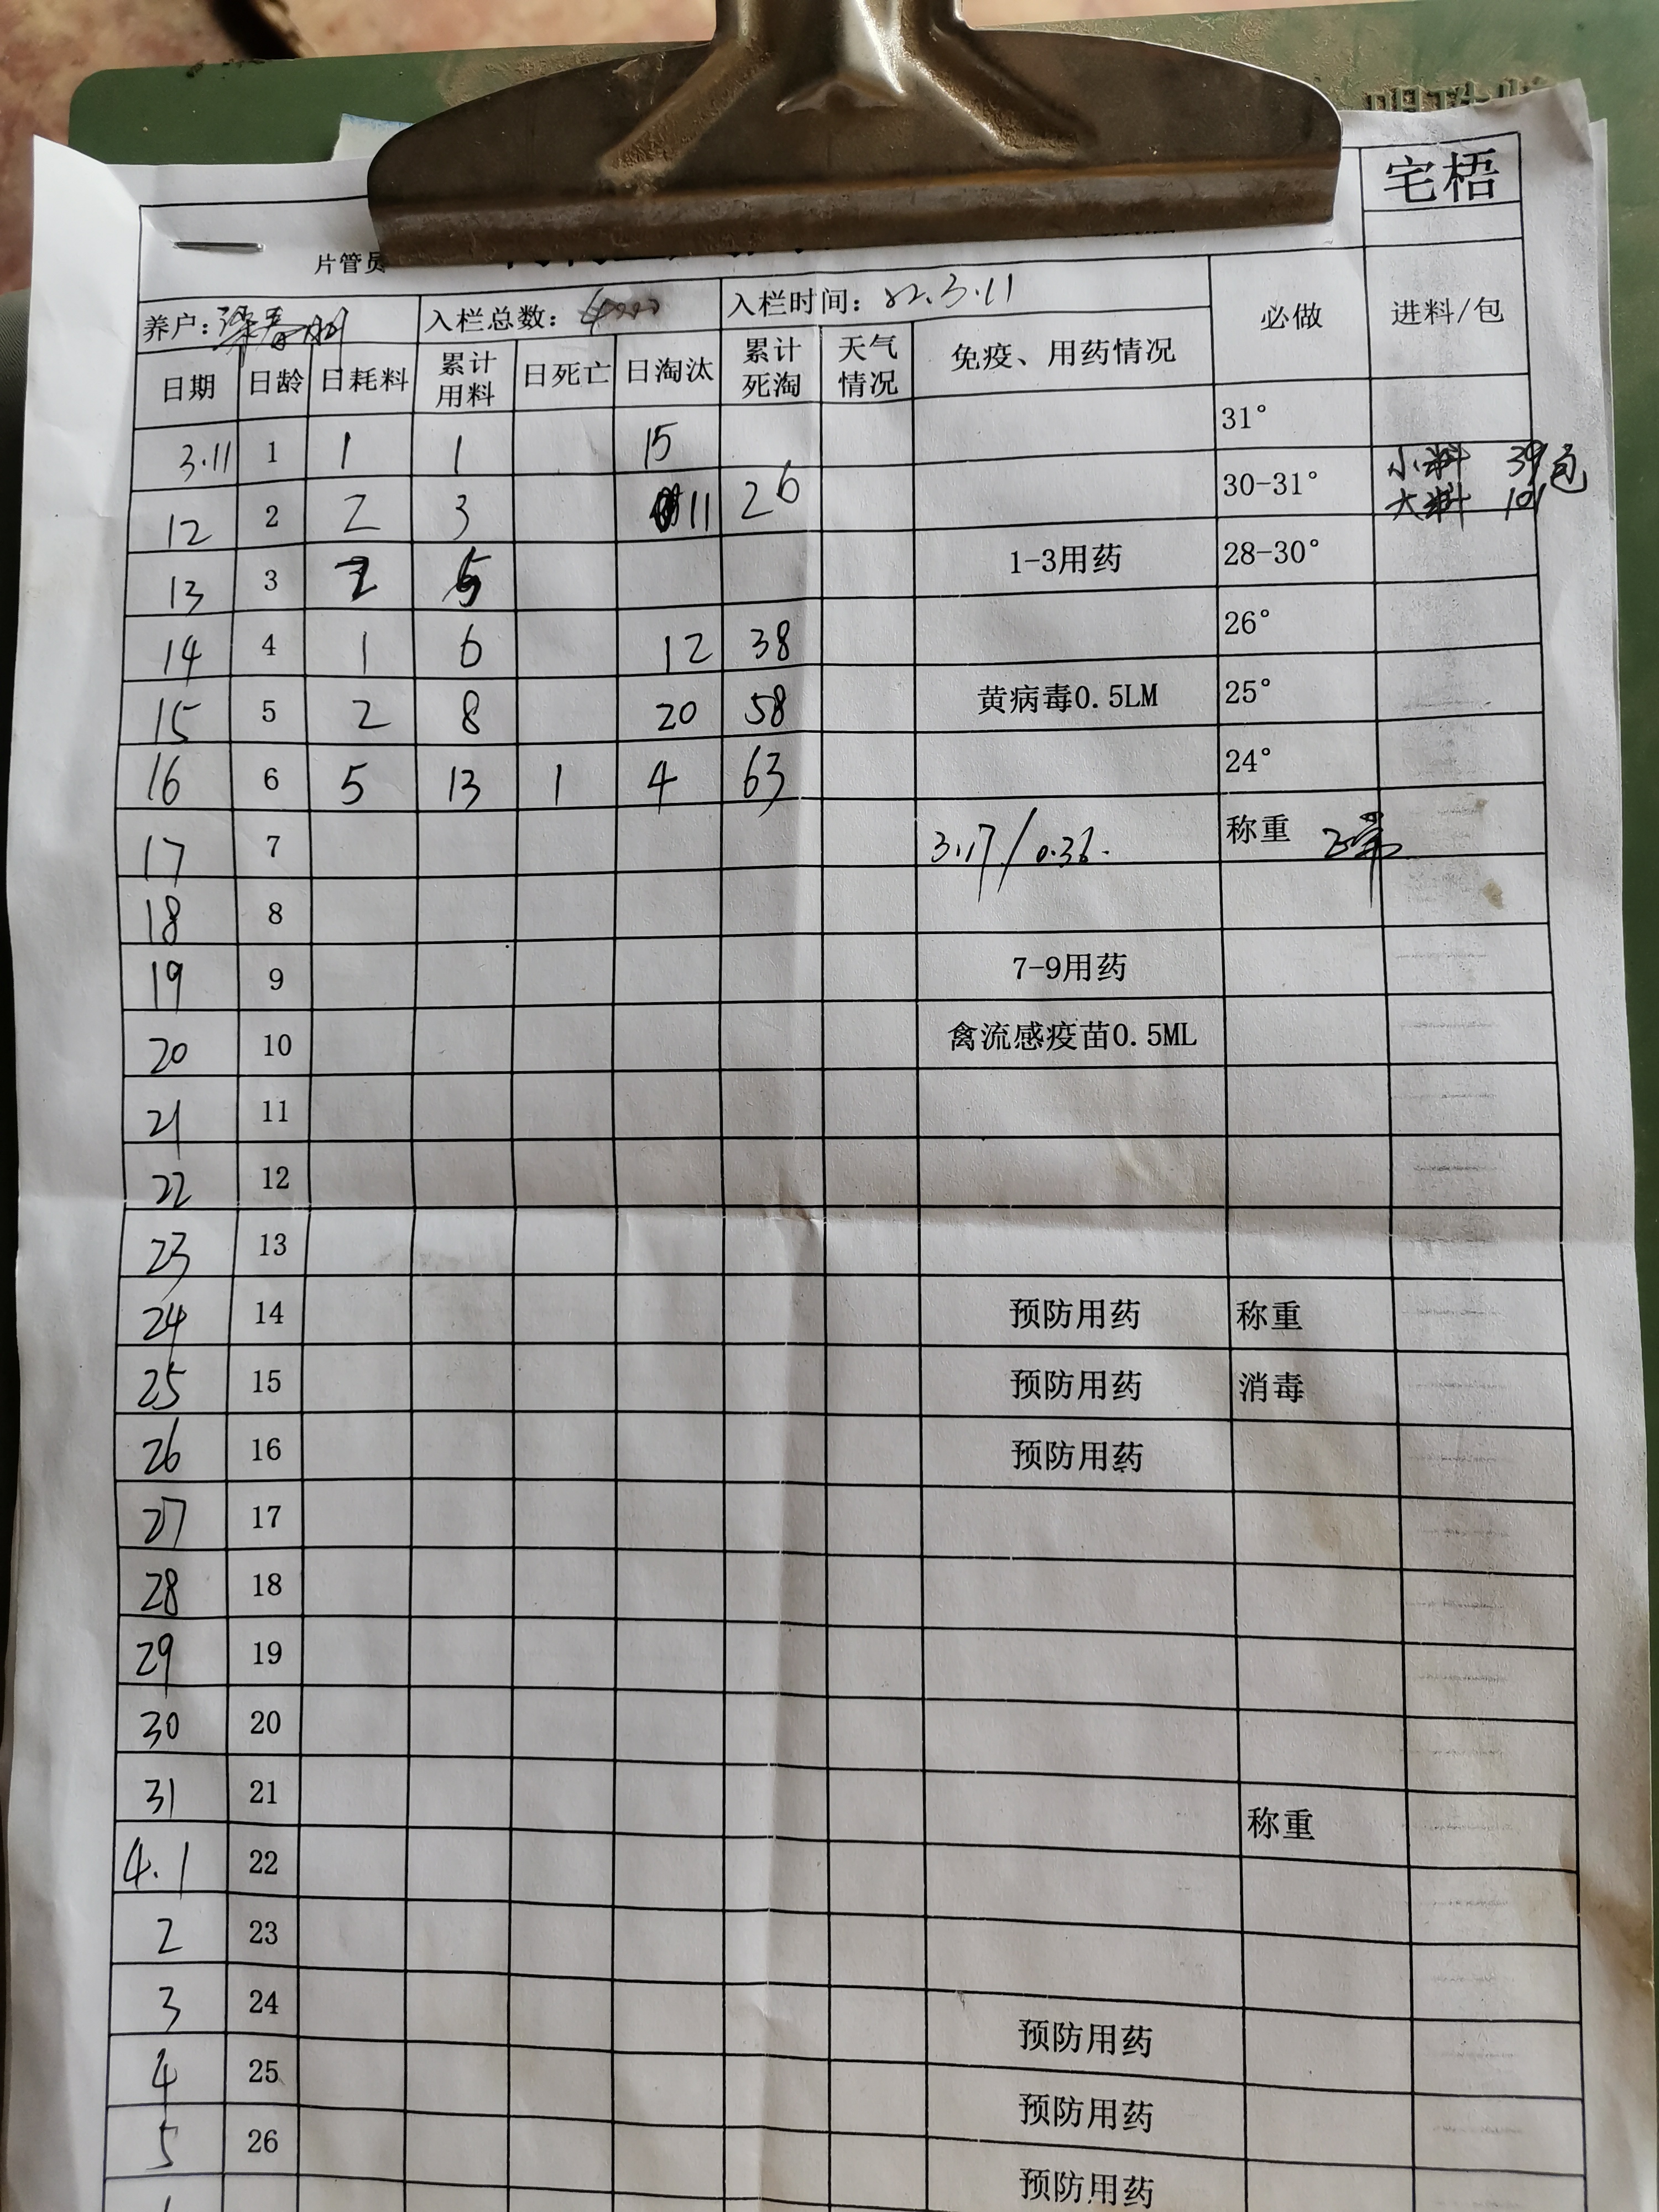 宅梧
片管员
养户: 入栏总数: 入栏时间: 22.3.11 必做 进料/包
日期 日龄 日耗料 累计用料 日死亡 日淘汰 累计死淘 天气情况 免疫、用药情况
3.11 1 1 1 15 31°
12 2 2 3 11 26 30-31° 小料 39包
大料 101
13 3 2 5 1-3用药 28-30°
14 4 1 6 12 38 26°
15 5 2 8 20 58 黄病毒0.5LM 25°
16 6 5 13 1 4 63 24°
17 7 3.17/0.36. 称重 正常
18 8
19 9 7-9用药
20 10 禽流感疫苗0.5ML
21 11
22 12
23 13
24 14 预防用药 称重
25 15 预防用药 消毒
26 16 预防用药
27 17
28 18
29 19
30 20
31 21 称重
4.1 22
2 23
3 24 预防用药
4 25 预防用药
5 26 预防用药